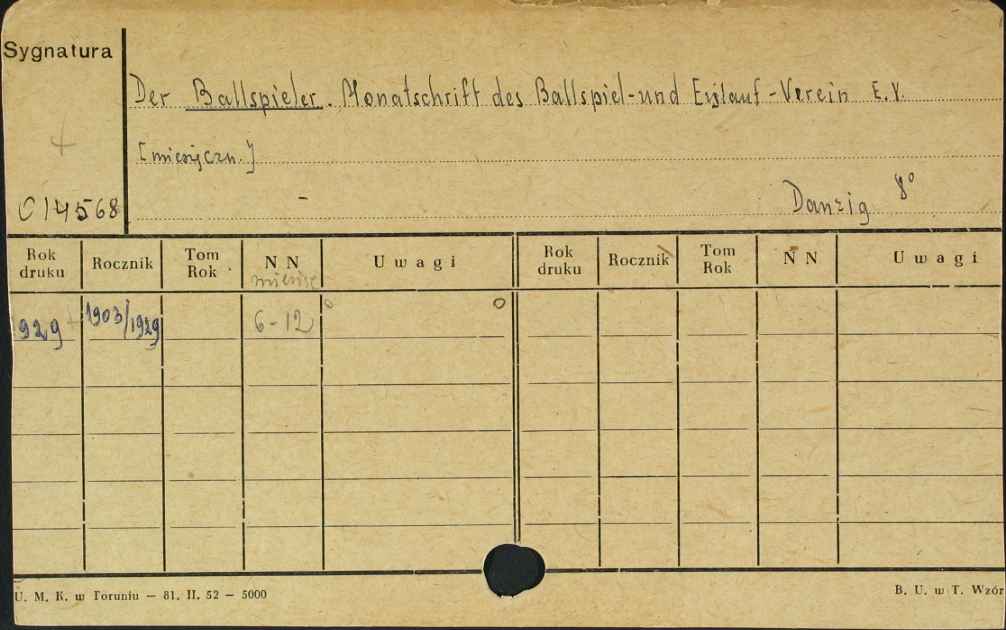 Sygnatura
Der Ballspieler. Monatschrift des Ballspiel-und Eislauf-Verein E.V.
[miesięczn.]
014568
-
Danzig 8°
Rok druku Rocznik Tom Rok NN Uwagi Rok druku Rocznik Tom Rok NN Uwagi
miesiące
929 1903/1929 6-12
U. M. K. w Toruniu — 81. II. 52 — 5000
B. U. w T. Wzór